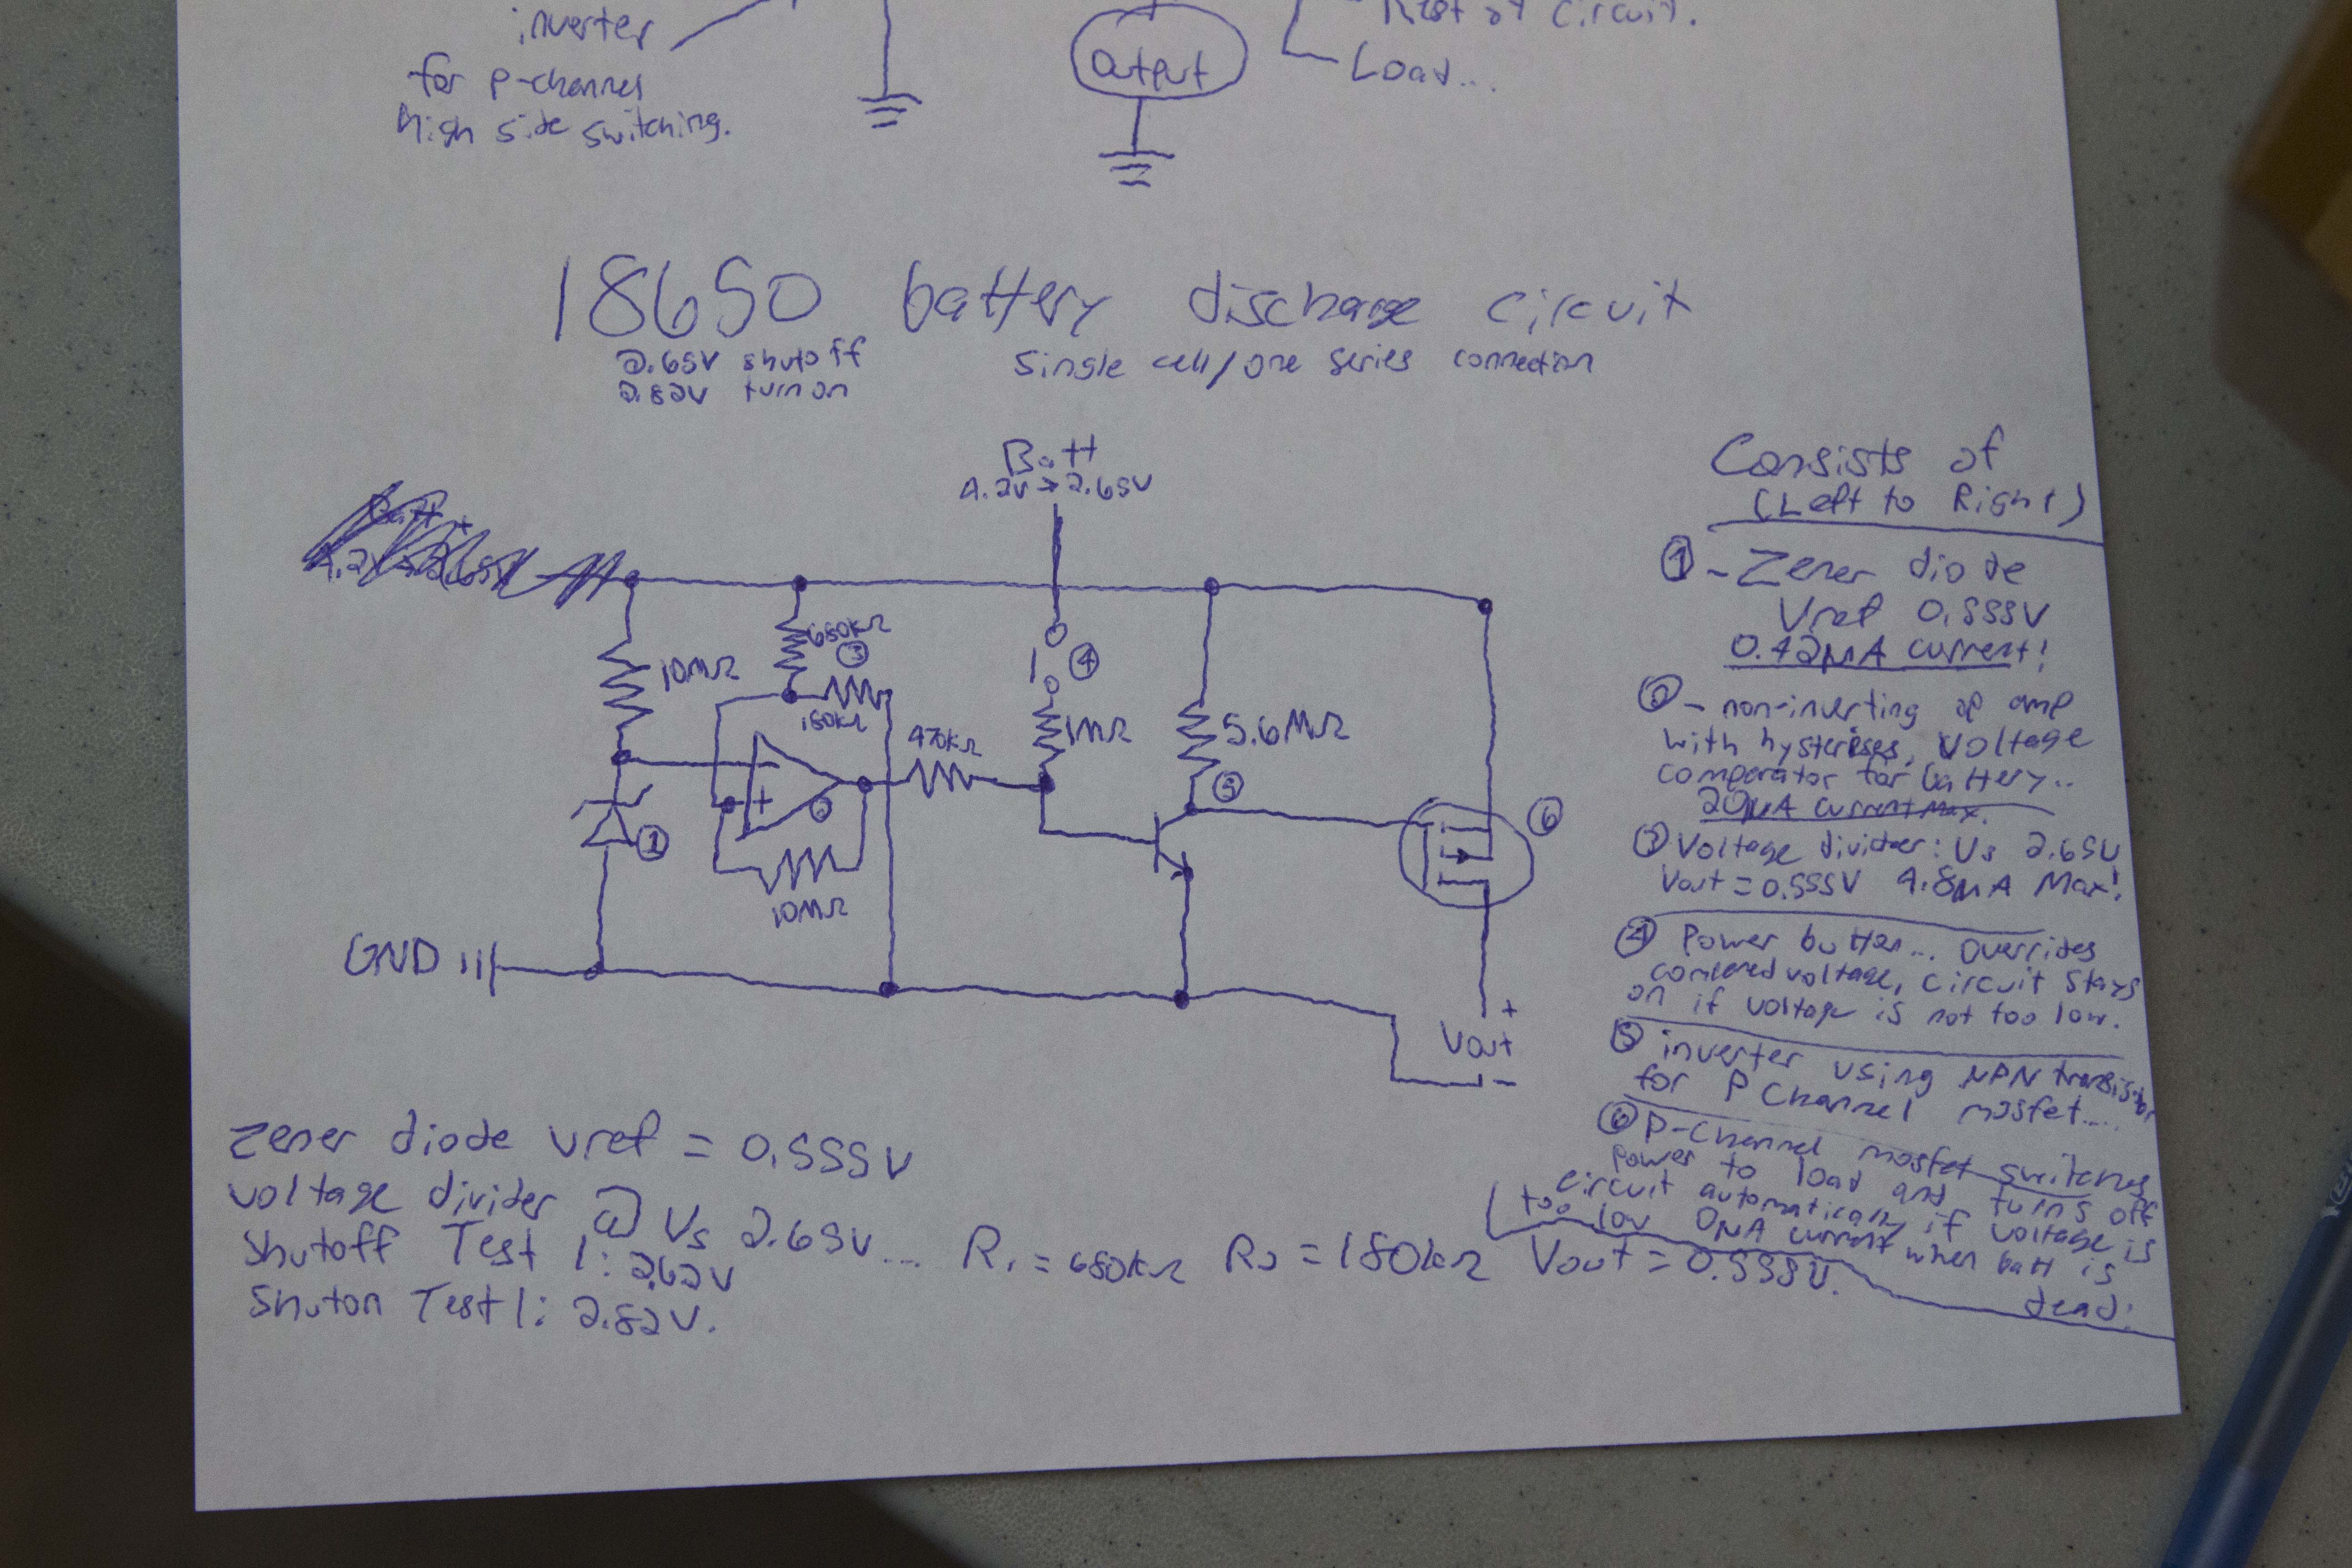 inverter
for P-channel
high side switching.
Output
Rest of Circuit.
Load...
18650 battery discharge circuit
2.65V shutoff
2.82V turn on
Single cell/one series connection
Batt
4.2V → 2.65V
10MΩ
680kΩ
③
180kΩ
470kΩ
④
1MΩ
5.6MΩ
⑤
⑥
+
②
①
10MΩ
GND
+
Vout
-
Consists of
(Left to Right)
① - Zener diode
Vref 0.555V
0.42µA current!
② - non-inverting op amp
with hystereses, voltage
comperator for battery..
20µA current max.
③ Voltage divider: Vs 2.65V
Vout = 0.555V 4.8µA Max!
④ Power button... overrides
voltage, circuit stays
on if voltage is not too low.
⑤ inverter using NPN transistor
for P Channel mosfet....
⑥ P-Channel mosfet switches
power to load and turns off
circuit automatically if voltage is
too low 0µA current when batt is
dead!
Zener diode vref = 0.555V
voltage divider @ Vs 2.65V... R1 = 680kΩ R2 = 180kΩ Vout = 0.555V.
Shutoff Test 1: 2.62V
Shuton Test 1: 2.82V.